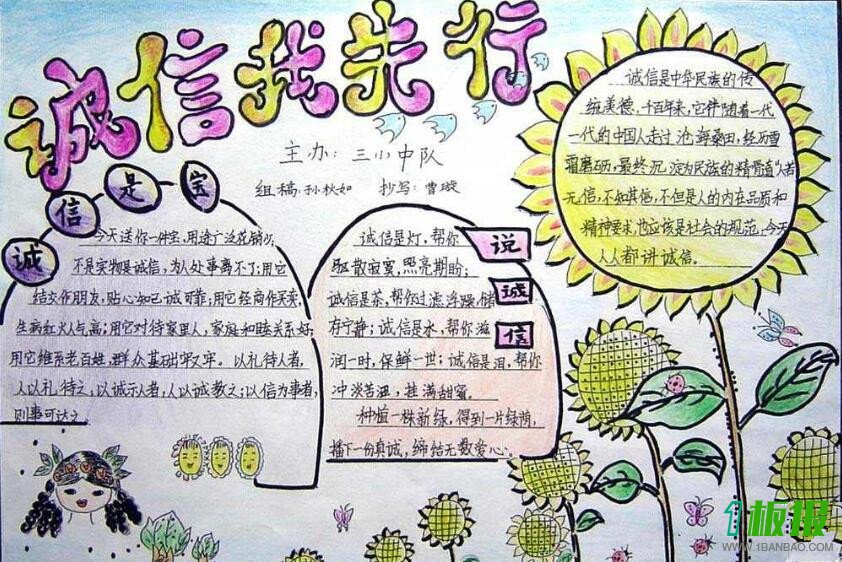 诚信我先行
主办：三小中队
组稿：孙秋如 抄写：曹璇
诚信是宝
今天送你一件宝，用途广泛花销少，
不是实物是诚信，为人处事离不了；用它
结交作朋友，贴心知己诚可靠；用它经商作买卖，
生病红火人气高；用它对待家里人，家庭和睦关系好；
用它维系老百姓，群众基础牢又牢。以礼待人者，
人以礼待之，以诚示人者，人以诚教之；以信为事者，
则事可达之
说诚信
诚信是灯，帮你
驱散寂寞，照亮期盼；
诚信是茶，帮你过滤浮躁，储
存宁静；诚信是水，帮你滋
润一时，保鲜一世；诚信是泪，帮你
冲淡苦涩，挂满甜蜜。
种植一株新绿，得到一片绿荫，
播下一份真诚，缔结无数爱心。
诚信是中华民族的传
统美德，千百年来，它伴随着一代
一代的中国人走过沧海桑田，经历雪
霜磨砺，最终沉淀为民族的精骨道“人若
无信，不知其他，不但是人的内在品质和
精神要求，也应该是社会的规范，今天
人人都讲诚信。
1板报
WWW.1BANBAO.COM